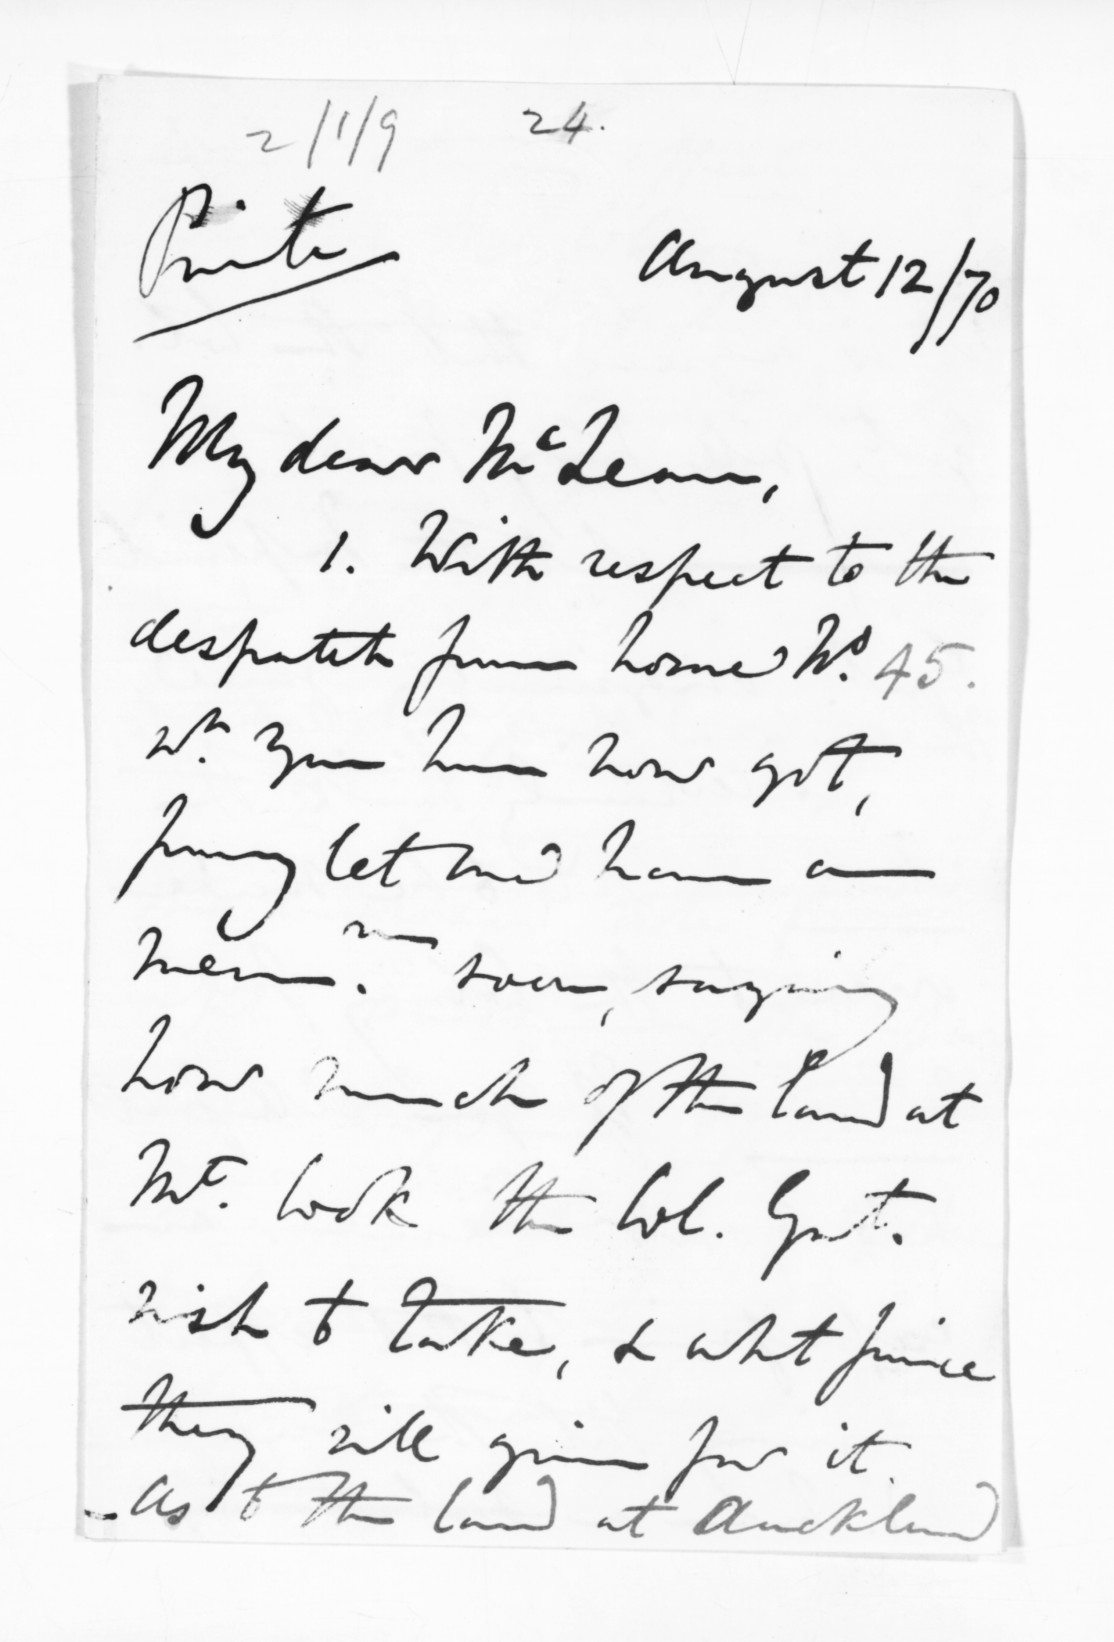 2/1/9 24.
Private
August 12/70
My dear McLean,
1. With respect to the
despatch from home No. 45.
wh. you have now got,
pray let me have a
memm. soon, saying
how much of the land at
Mt. Cook the Col. Govt.
wish to take, & what price
they will give for it.
As to the land at Auckland